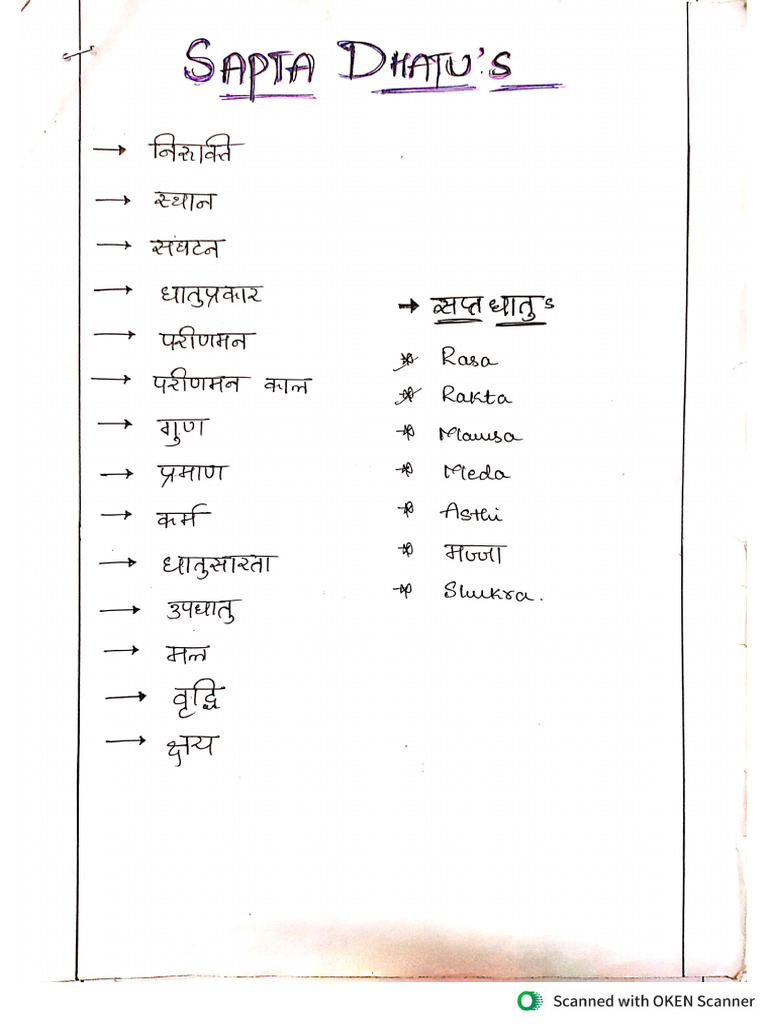 SAPTA DHATU'S
→ निरूक्ति
→ स्थान
→ संघटन
→ धातुप्रकार
→ परीणमन
→ परीणमन काल
→ गुण
→ प्रमाण
→ कर्म
→ धातुसारता
→ उपधातु
→ मल
→ वृद्धि
→ क्षय
→ सप्त धातु s
* Rasa
* Rakta
* Mamsa
* Meda
* Asthi
* मज्जा
* Shukra.
Scanned with OKEN Scanner